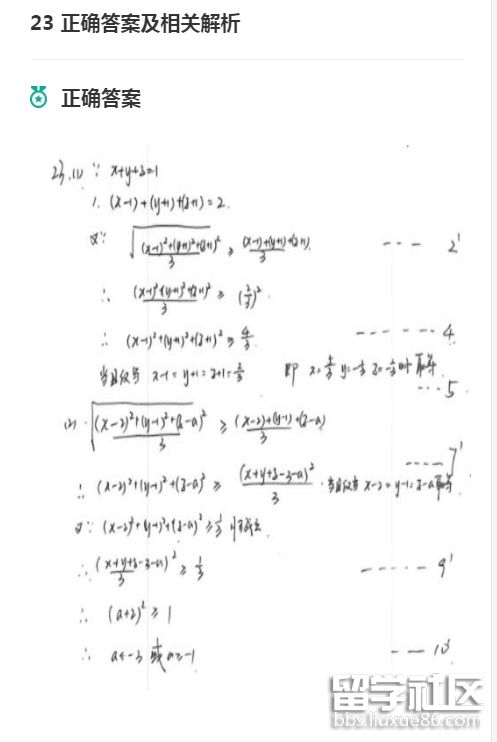 23 正确答案及相关解析
正确答案
23.(1) ∵ x+y+z=1
∴ (x-1)+(y+1)+(z+1)=2.
又∵ √((x-1)²+(y+1)²+(z+1)²)/3 ≥ ((x-1)+(y+1)+(z+1))/3 --- 2'
∴ ((x-1)²+(y+1)²+(z+1)²)/3 ≥ (2/3)²
∴ (x-1)²+(y+1)²+(z+1)² ≥ 4/3 ------ 4
当且仅当 x-1=y+1=z+1=2/3 即 x=5/3 y=-1/3 z=-1/3时取等. --- 5
(2) √((x-2)²+(y-1)²+(z-a)²)/3 ≥ ((x-2)+(y-1)+(z-a))/3
---- 7'
∴ (x-2)²+(y-1)²+(z-a)² ≥ (x+y+z-3-a)²/3 当且仅当 x-2=y-1=z-a取等.
又∵ (x-2)²+(y-1)²+(z-a)² ≥ 1/3 恒成立
∴ (x+y+z-3-a)²/3 ≥ 1/3 ----- 9'
∴ (a+2)² ≥ 1
∴ a≤-3 或 a≥-1 --- 10'
留学社区
bbs.liuxue86.com